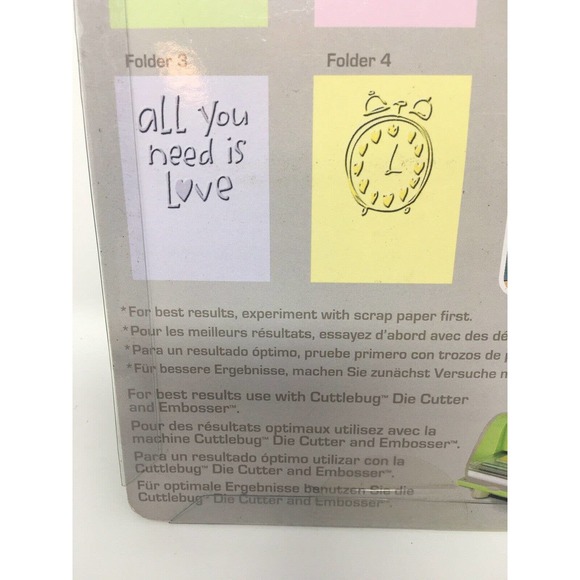 Folder 3
Folder 4
all you
need is
Love
*For best results, experiment with scrap paper first.
*Pour les meilleurs résultats, essayez d'abord avec des
*Para un resultado óptimo, pruebe primero con trozos de
*Für bessere Ergebnisse, machen Sie zunächst Versuche
For best results use with Cuttlebug™ Die Cutter
and Embosser™.
Pour des résultats optimaux utilisez avec la
machine Cuttlebug™ Die Cutter and Embosser™.
Para un resultado óptimo utilizar con la
Cuttlebug™ Die Cutter and Embosser™.
Für optimale Ergebnisse benutzen Sie die
Cuttlebug™ Die Cutter and Embosser™.